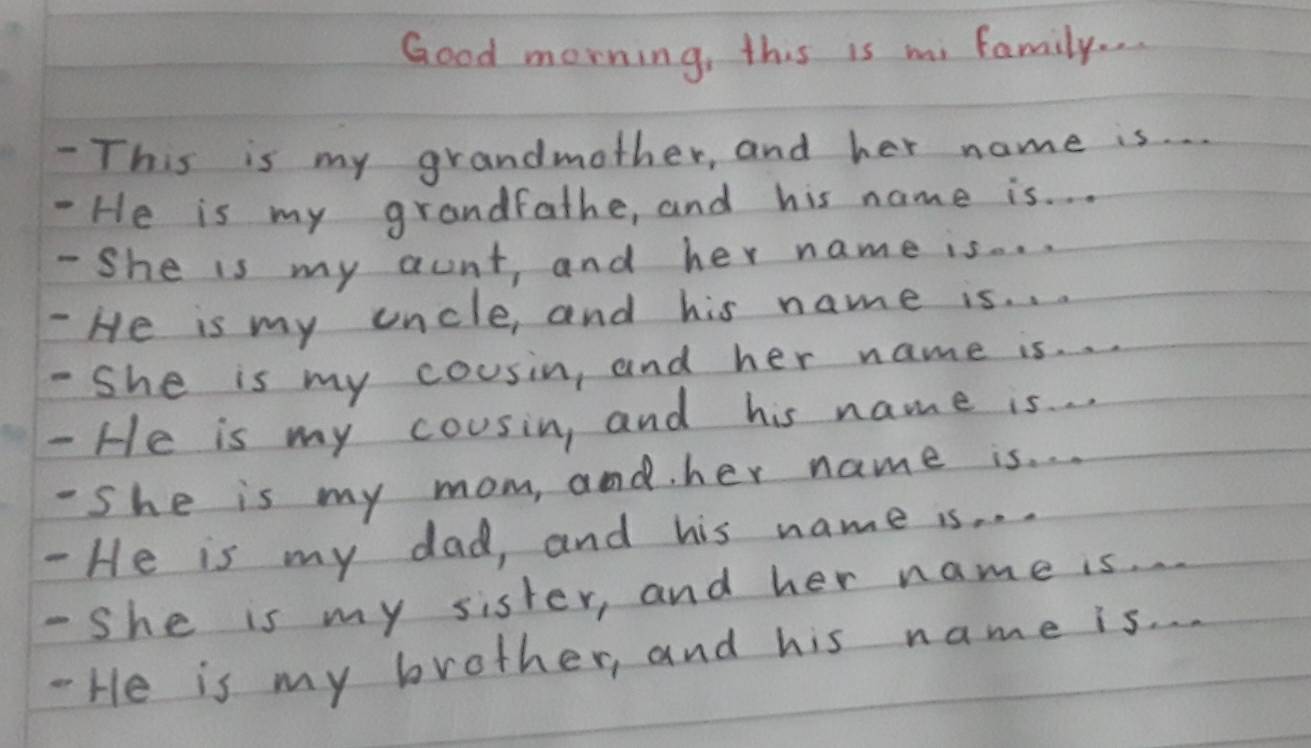 Good morning, this is mi family...
- This is my grandmother, and her name is...
- He is my grandfathe, and his name is...
- She is my aunt, and her name is...
- He is my uncle, and his name is...
- She is my cousin, and her name is....
- He is my cousin, and his name is...
- She is my mom, and her name is...
- He is my dad, and his name is...
- She is my sister, and her name is...
- He is my brother, and his name is...